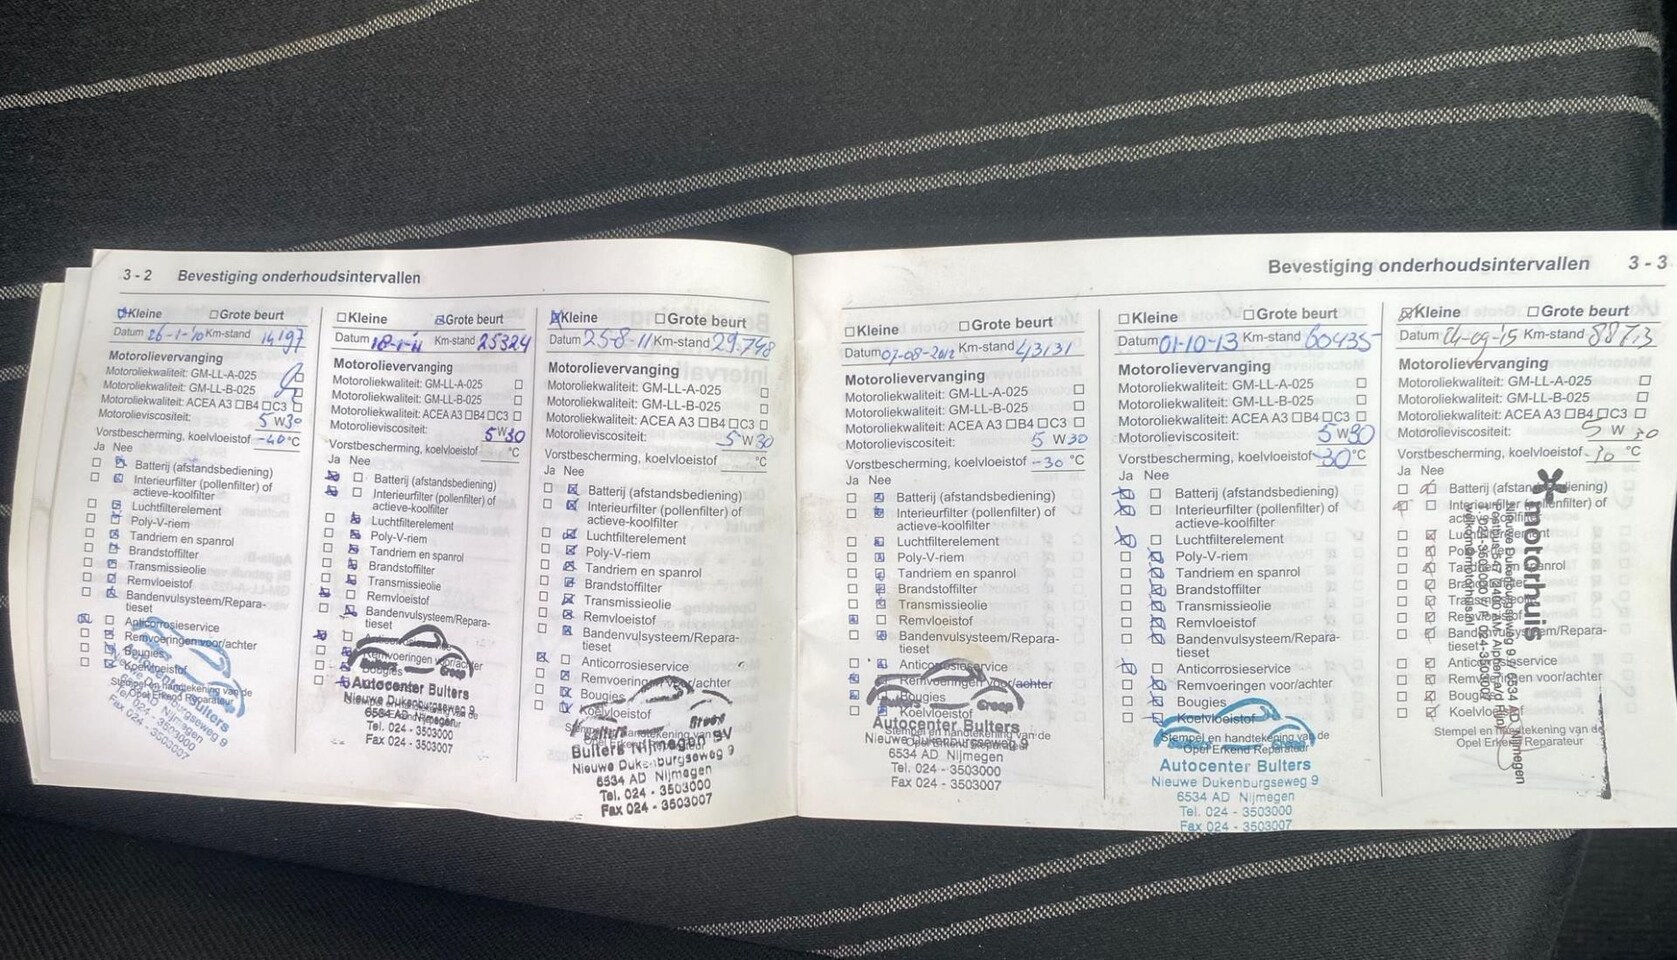 3 - 2 Bevestiging onderhoudsintervallen
Kleine Grote beurt
Datum 26-1-'10 Km-stand 14197
Motorolievervanging
Motoroliekwaliteit: GM-LL-A-025
Motoroliekwaliteit: GM-LL-B-025
Motoroliekwaliteit: ACEA A3 B4 C3
Motorolieviscositeit: 5 W 30
Vorstbescherming, koelvloeistof -40 °C
Ja Nee
Batterij (afstandsbediening)
Interieurfilter (pollenfilter) of
actieve-koolfilter
Luchtfilterelement
Poly-V-riem
Tandriem en spanrol
Brandstoffilter
Transmissieolie
Remvloeistof
Bandenvulsysteem/Repara-
tieset
Anticorrosieservice
Remvoeringen voor/achter
Bougies
Koelvloeistof
Stempel en handtekening van de
Opel Erkend Reparateur
Autocenter Bulters
Nieuwe Dukenburgseweg 9
6534 AD Nijmegen
Tel. 024 - 3503000
Fax 024 - 3503007
Kleine Grote beurt
Datum 18-1-11 Km-stand 25324
Motorolievervanging
Motoroliekwaliteit: GM-LL-A-025
Motoroliekwaliteit: GM-LL-B-025
Motoroliekwaliteit: ACEA A3 B4 C3
Motorolieviscositeit: 5 W 30
Vorstbescherming, koelvloeistof °C
Ja Nee
Batterij (afstandsbediening)
Interieurfilter (pollenfilter) of
actieve-koolfilter
Luchtfilterelement
Poly-V-riem
Tandriem en spanrol
Brandstoffilter
Transmissieolie
Remvloeistof
Bandenvulsysteem/Repara-
tieset
Anticorrosieservice
Remvoeringen voor/achter
Bougies
Groep
Autocenter Bulters
Nieuwe Dukenburgseweg 9
6534 AD Nijmegen
Tel. 024 - 3503000
Fax 024 - 3503007
Kleine Grote beurt
Datum 25-8-11 Km-stand 29.748
Motorolievervanging
Motoroliekwaliteit: GM-LL-A-025
Motoroliekwaliteit: GM-LL-B-025
Motoroliekwaliteit: ACEA A3 B4 C3
Motorolieviscositeit: 5 W 30
Vorstbescherming, koelvloeistof °C
Ja Nee
Batterij (afstandsbediening)
Interieurfilter (pollenfilter) of
actieve-koolfilter
Luchtfilterelement
Poly-V-riem
Tandriem en spanrol
Brandstoffilter
Transmissieolie
Remvloeistof
Bandenvulsysteem/Repara-
tieset
Anticorrosieservice
Remvoeringen voor/achter
Bougies
Koelvloeistof
Stempel en handtekening van de
Bulters Nijmegen BV
Nieuwe Dukenburgseweg 9
6534 AD Nijmegen
Tel. 024 - 3503000
Fax 024 - 3503007
Bevestiging onderhoudsintervallen 3 - 3
Kleine Grote beurt
Datum 07-08-2012 Km-stand 43131
Motorolievervanging
Motoroliekwaliteit: GM-LL-A-025
Motoroliekwaliteit: GM-LL-B-025
Motoroliekwaliteit: ACEA A3 B4 C3
Motorolieviscositeit: 5 W 30
Vorstbescherming, koelvloeistof -30 °C
Ja Nee
Batterij (afstandsbediening)
Interieurfilter (pollenfilter) of
actieve-koolfilter
Luchtfilterelement
Poly-V-riem
Tandriem en spanrol
Brandstoffilter
Transmissieolie
Remvloeistof
Bandenvulsysteem/Repara-
tieset
Anticorrosieservice
Remvoeringen voor/achter
Bougies
Koelvloeistof
Stempel en handtekening van de
Opel Erkend Reparateur
Bulters Groep
Autocenter Bulters
Nieuwe Dukenburgseweg 9
6534 AD Nijmegen
Tel. 024 - 3503000
Fax 024 - 3503007
Kleine Grote beurt
Datum 01-10-13 Km-stand 60435
Motorolievervanging
Motoroliekwaliteit: GM-LL-A-025
Motoroliekwaliteit: GM-LL-B-025
Motoroliekwaliteit: ACEA A3 B4 C3
Motorolieviscositeit: 5 W 30
Vorstbescherming, koelvloeistof -30 °C
Ja Nee
Batterij (afstandsbediening)
Interieurfilter (pollenfilter) of
actieve-koolfilter
Luchtfilterelement
Poly-V-riem
Tandriem en spanrol
Brandstoffilter
Transmissieolie
Remvloeistof
Bandenvulsysteem/Repara-
tieset
Anticorrosieservice
Remvoeringen voor/achter
Bougies
Koelvloeistof
Stempel en handtekening van de
Opel Erkend Reparateur
Autocenter Bulters
Nieuwe Dukenburgseweg 9
6534 AD Nijmegen
Tel. 024 - 3503000
Fax 024 - 3503007
Kleine Grote beurt
Datum 04-09-'15 Km-stand 88713
Motorolievervanging
Motoroliekwaliteit: GM-LL-A-025
Motoroliekwaliteit: GM-LL-B-025
Motoroliekwaliteit: ACEA A3 B4 C3
Motorolieviscositeit: 5 W 30
Vorstbescherming, koelvloeistof -30 °C
Ja Nee
Batterij (afstandsbediening)
Interieurfilter (pollenfilter) of
actieve-koolfilter
Luchtfilterelement
Poly-V-riem
Tandriem en spanrol
Brandstoffilter
Transmissieolie
Remvloeistof
Bandenvulsysteem/Repara-
tieset
Anticorrosieservice
Remvoeringen voor/achter
Bougies
Koelvloeistof
Stempel en handtekening van de
Opel Erkend Reparateur
motorhuis
Nieuwe Dukenburgseweg 9 6534 AD Nijmegen